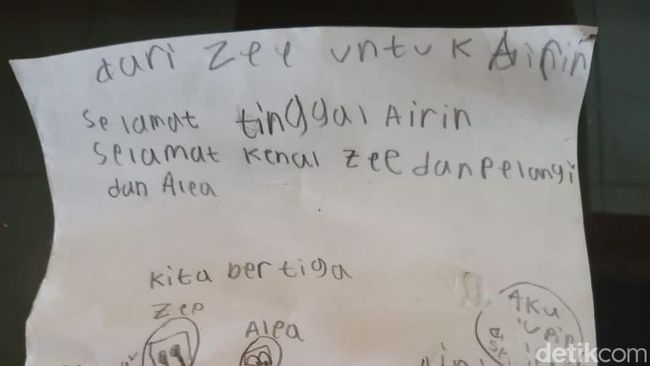 dari Zee untuk Airin
Selamat tinggal Airin
Selamat kenal Zee dan Pelangi
dan Alea
kita bertiga
Zee
Alea
AKU
detikcom